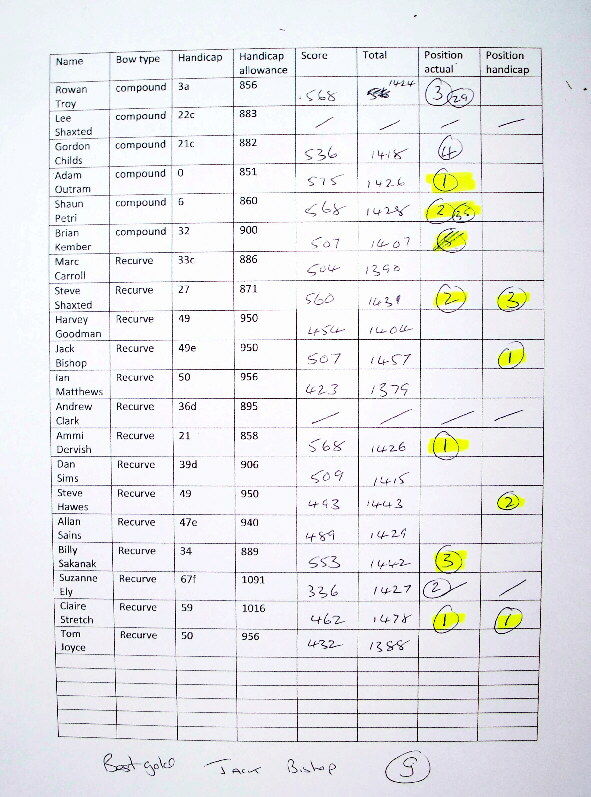 Name Bow type Handicap Handicap allowance Score Total Position actual Position handicap
Rowan Troy compound 3a 856 568 1424 3 29
Lee Shaxted compound 22c 883 / / / /
Gordon Childs compound 21c 882 536 1418 4
Adam Outram compound 0 851 575 1426 1
Shaun Petri compound 6 860 568 1428 2 35
Brian Kember compound 32 900 507 1407
Marc Carroll Recurve 33c 886 504 1390
Steve Shaxted Recurve 27 871 560 1431 2 3
Harvey Goodman Recurve 49 950 454 1404
Jack Bishop Recurve 49e 950 507 1457 1
Ian Matthews Recurve 50 956 423 1379
Andrew Clark Recurve 36d 895 / / / /
Ammi Dervish Recurve 21 858 568 1426 1
Dan Sims Recurve 39d 906 509 1415
Steve Hawes Recurve 49 950 493 1443 2
Allan Sains Recurve 47e 940 489 1429
Billy Sakanak Recurve 34 889 553 1442 3
Suzanne Ely Recurve 67f 1091 336 1427 2 / /
Claire Stretch Recurve 59 1016 462 1478 1 1
Tom Joyce Recurve 50 956 432 1388
Best gold Jack Bishop 9